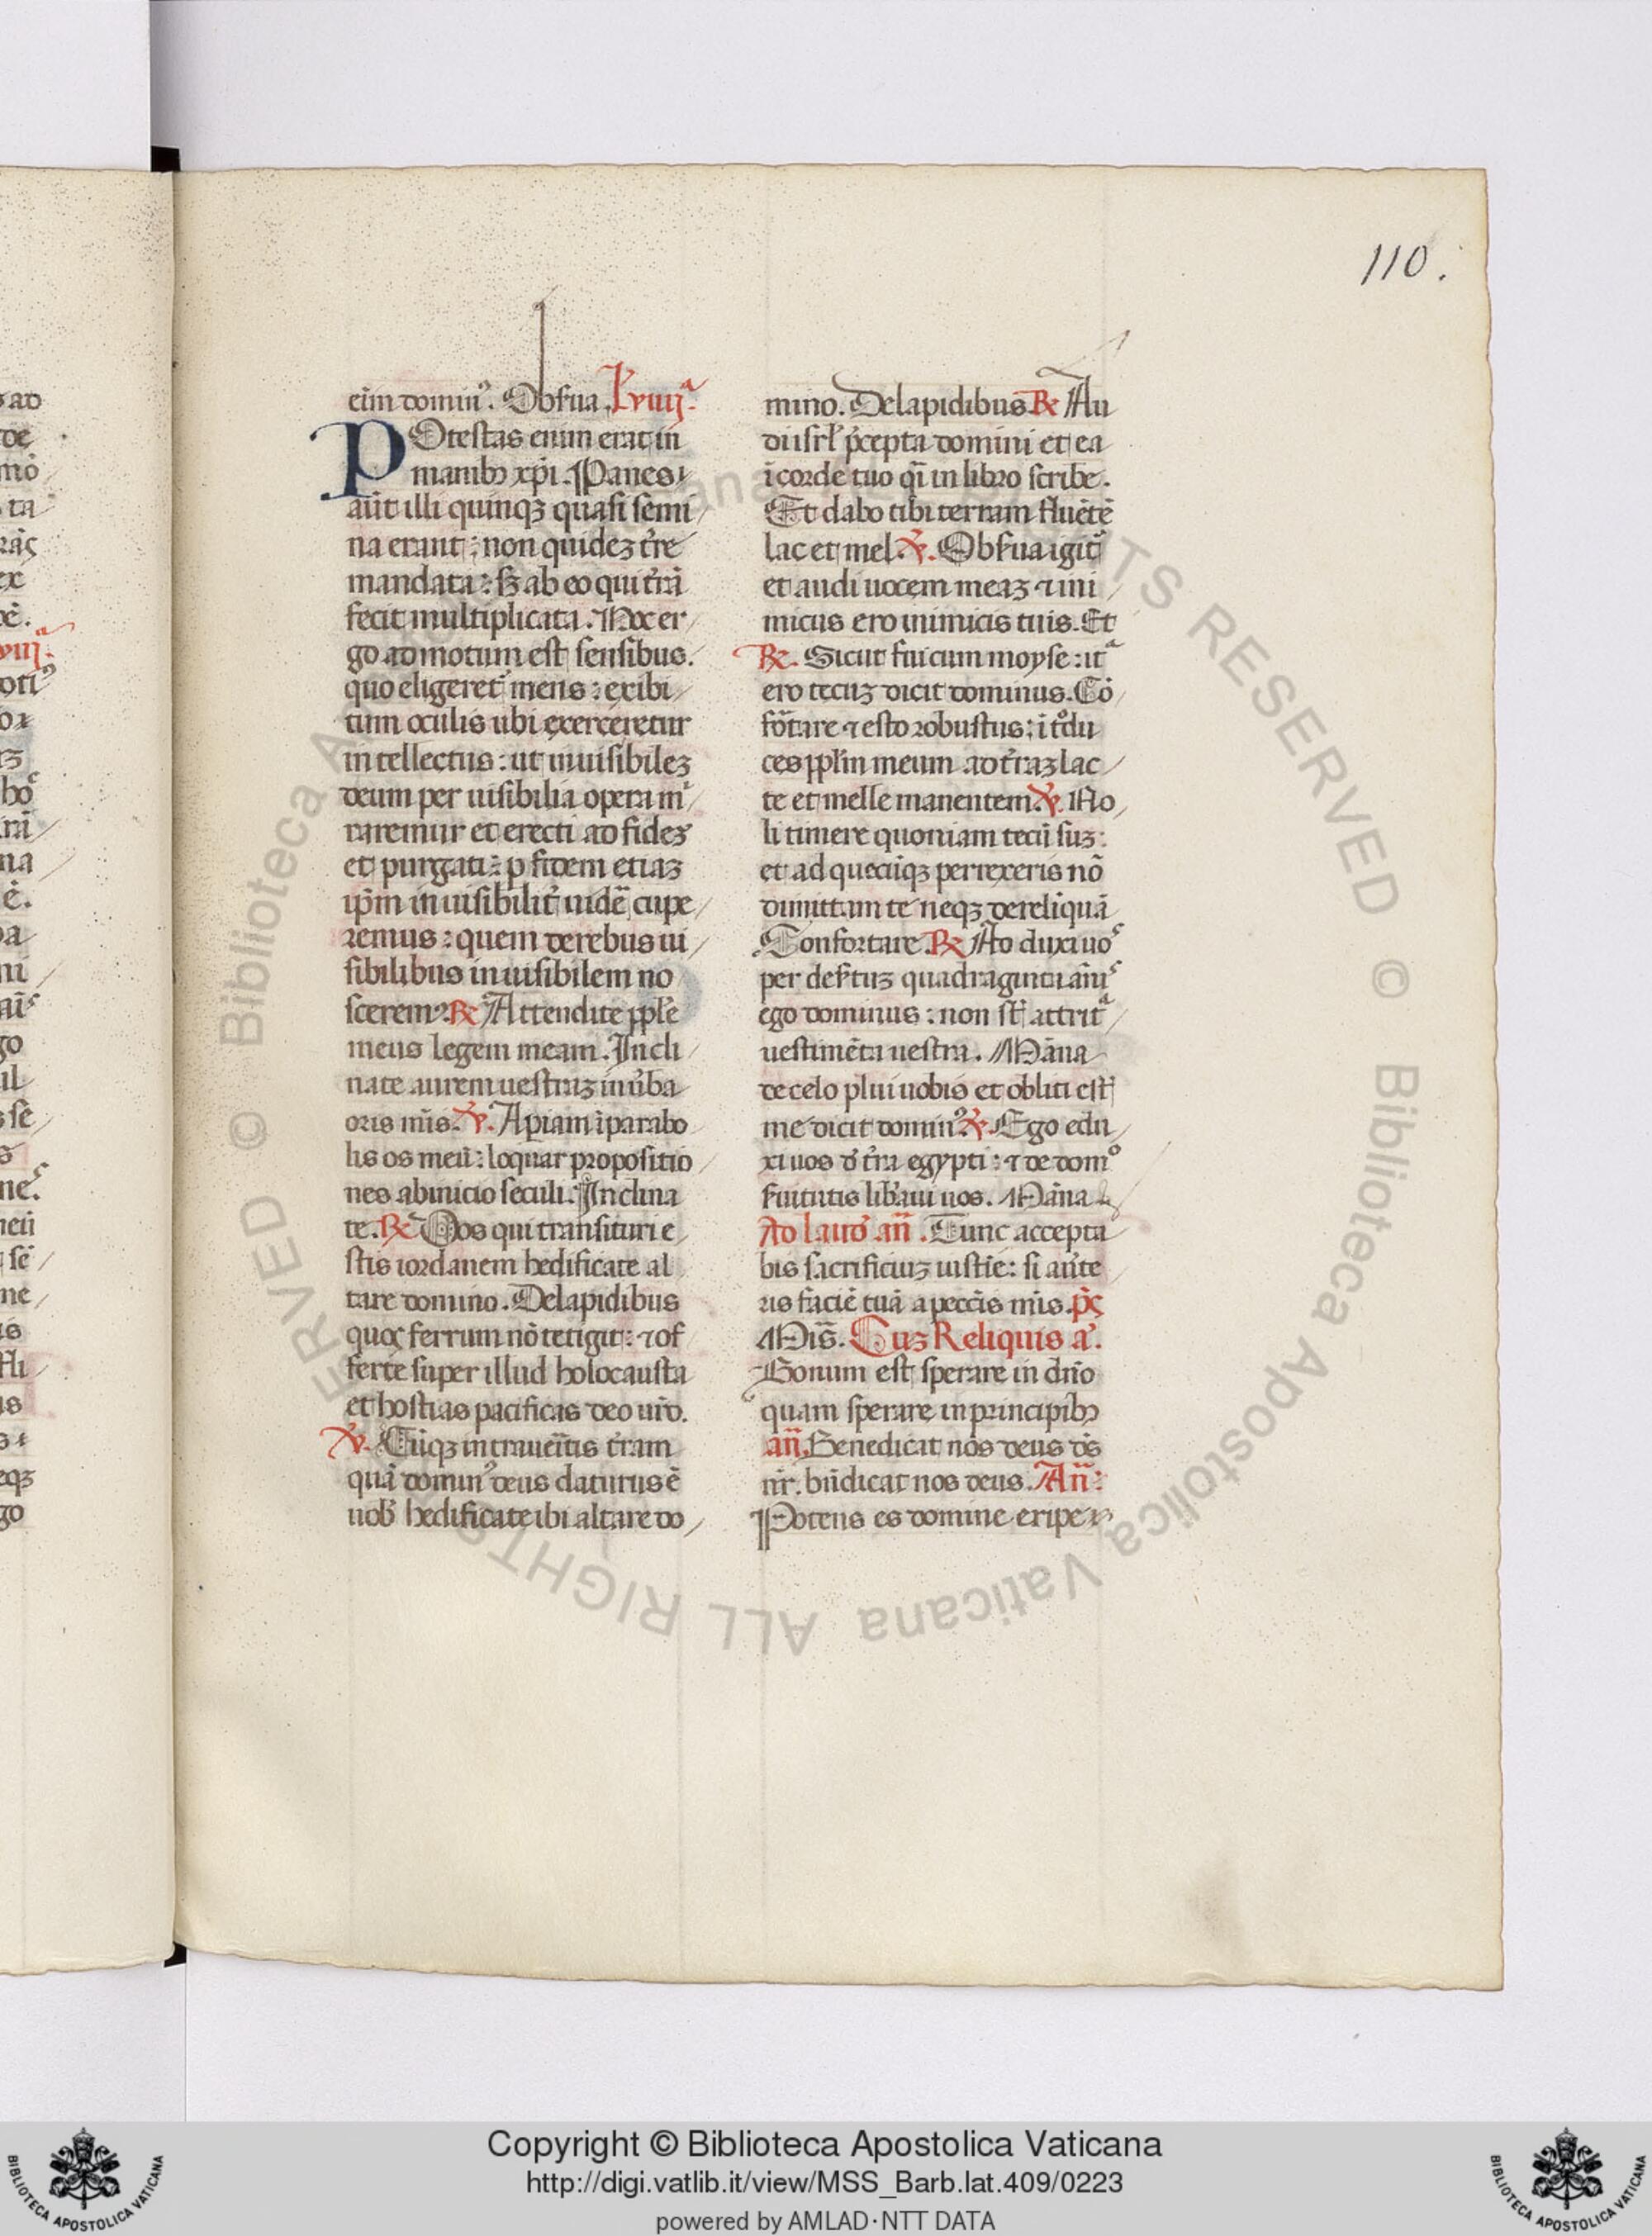 110.
eim domin⁹. Obſeꝛua. L'. viiij.ª
POteſtas enim erat in
manibꝫ xp̄i. Panes
aūt illi quinqꝫ quaſi ſemi
na erant: non quideꝫ t̄re
mandata: sꝫ ab eo qui t̄rā
fecit multiplicata. Hoc er
go admotum eſt ſenſibus.
quo erigeret᷑ mens: exibi
tum oculis ubi exerceretur
intellectus: ut inuiſibileꝫ
deum per uiſibilia opera mi
raremur et erecti ad fideꝫ
et purgati: ꝑ fidem etiaꝫ
ip̄m inuiſibilit᷑ uidē cupe
remus: quem de rebus ui
ſibilibus inuiſibilem no
ſcerem⁹. ℞ Attendite pple
meus legem meam. Incli
nate aurem ueſtraꝫ in ūba
oris mīs. ℣. Apiam ī parabo
lis os meū: loquar propoſitio
nes ab inicio ſeculi. Inclina
te. ℞ Uos qui tranſituri e
ſtis iordanem hedificate al
tare domino. De lapidibus
quos ferrum nō tetigit: ⁊ of
ferte ſuper illud holocauſta
et hoſtias pacificas deo uīo.
℣. Cūqꝫ intraueītis t̄ram
quā domin⁹ deus daturus ē
uob̄ hedificate ibi altare do
mino. De lapidibus ℞ Au
di iſrł p̄cepta domini et ea
ī corde tuo qī in libro ſcribe.
Et dabo tibi terram fluētē
lac et mel. ℣. Obſeꝛua igit᷑
et audi uocem meaꝫ ⁊ ini
micus ero inimicis tuis. Et
℞. Sicut fui cum moyſe: itª
ero tecuꝫ dicit dominus. Cō
fōtare ⁊ eſto robuſtus: ītͦdu
ces pplm meum ad t̄raꝫ lac
te et melle manentem. ℣. No
li timere quoniam tecū ſuꝫ:
et ad quecūqꝫ perrexeris nō
dimittam te neqꝫ derelīquā
Confortare. ℞ Ad duxi uoˢ
per deſtuꝫ quadraginta anniˢ
ego dominus: non ſt̄ attritª
ueſtimēta ueſtra. Māna
de celo plui uobis et obliti eſt᷑
me dicit domin⁹. ℣. Ego edu
xi uos d̄ t̄ra egypti: ⁊ de domͦ
ſeꝛuitutis lib̄aui uos. Māna
Ad laud̄ an̄. Tunc accepta
bis ſacrificiuꝫ iuſtīe: ſi aūte
ris faciē tuā a peccīs mīs. pˢ
Mis̄. Cuꝫ Reliquis a᷑.
Bonum eſt ſperare in dn̄o
quam ſperare in principibꝫ
an̄. Benedicat nos deus d̄s
nr̄. bn̄dicat nos deus. An̄:
Potens es domine eripe
© Biblioteca Apostolica Vaticana ALL RIGHTS RESERVED
Copyright © Biblioteca Apostolica Vaticana
http://digi.vatlib.it/view/MSS_Barb.lat.409/0223
powered by AMLAD·NTT DATA
BIBLIOTECA APOSTOLICA VATICANA
BIBLIOTECA APOSTOLICA VATICANA